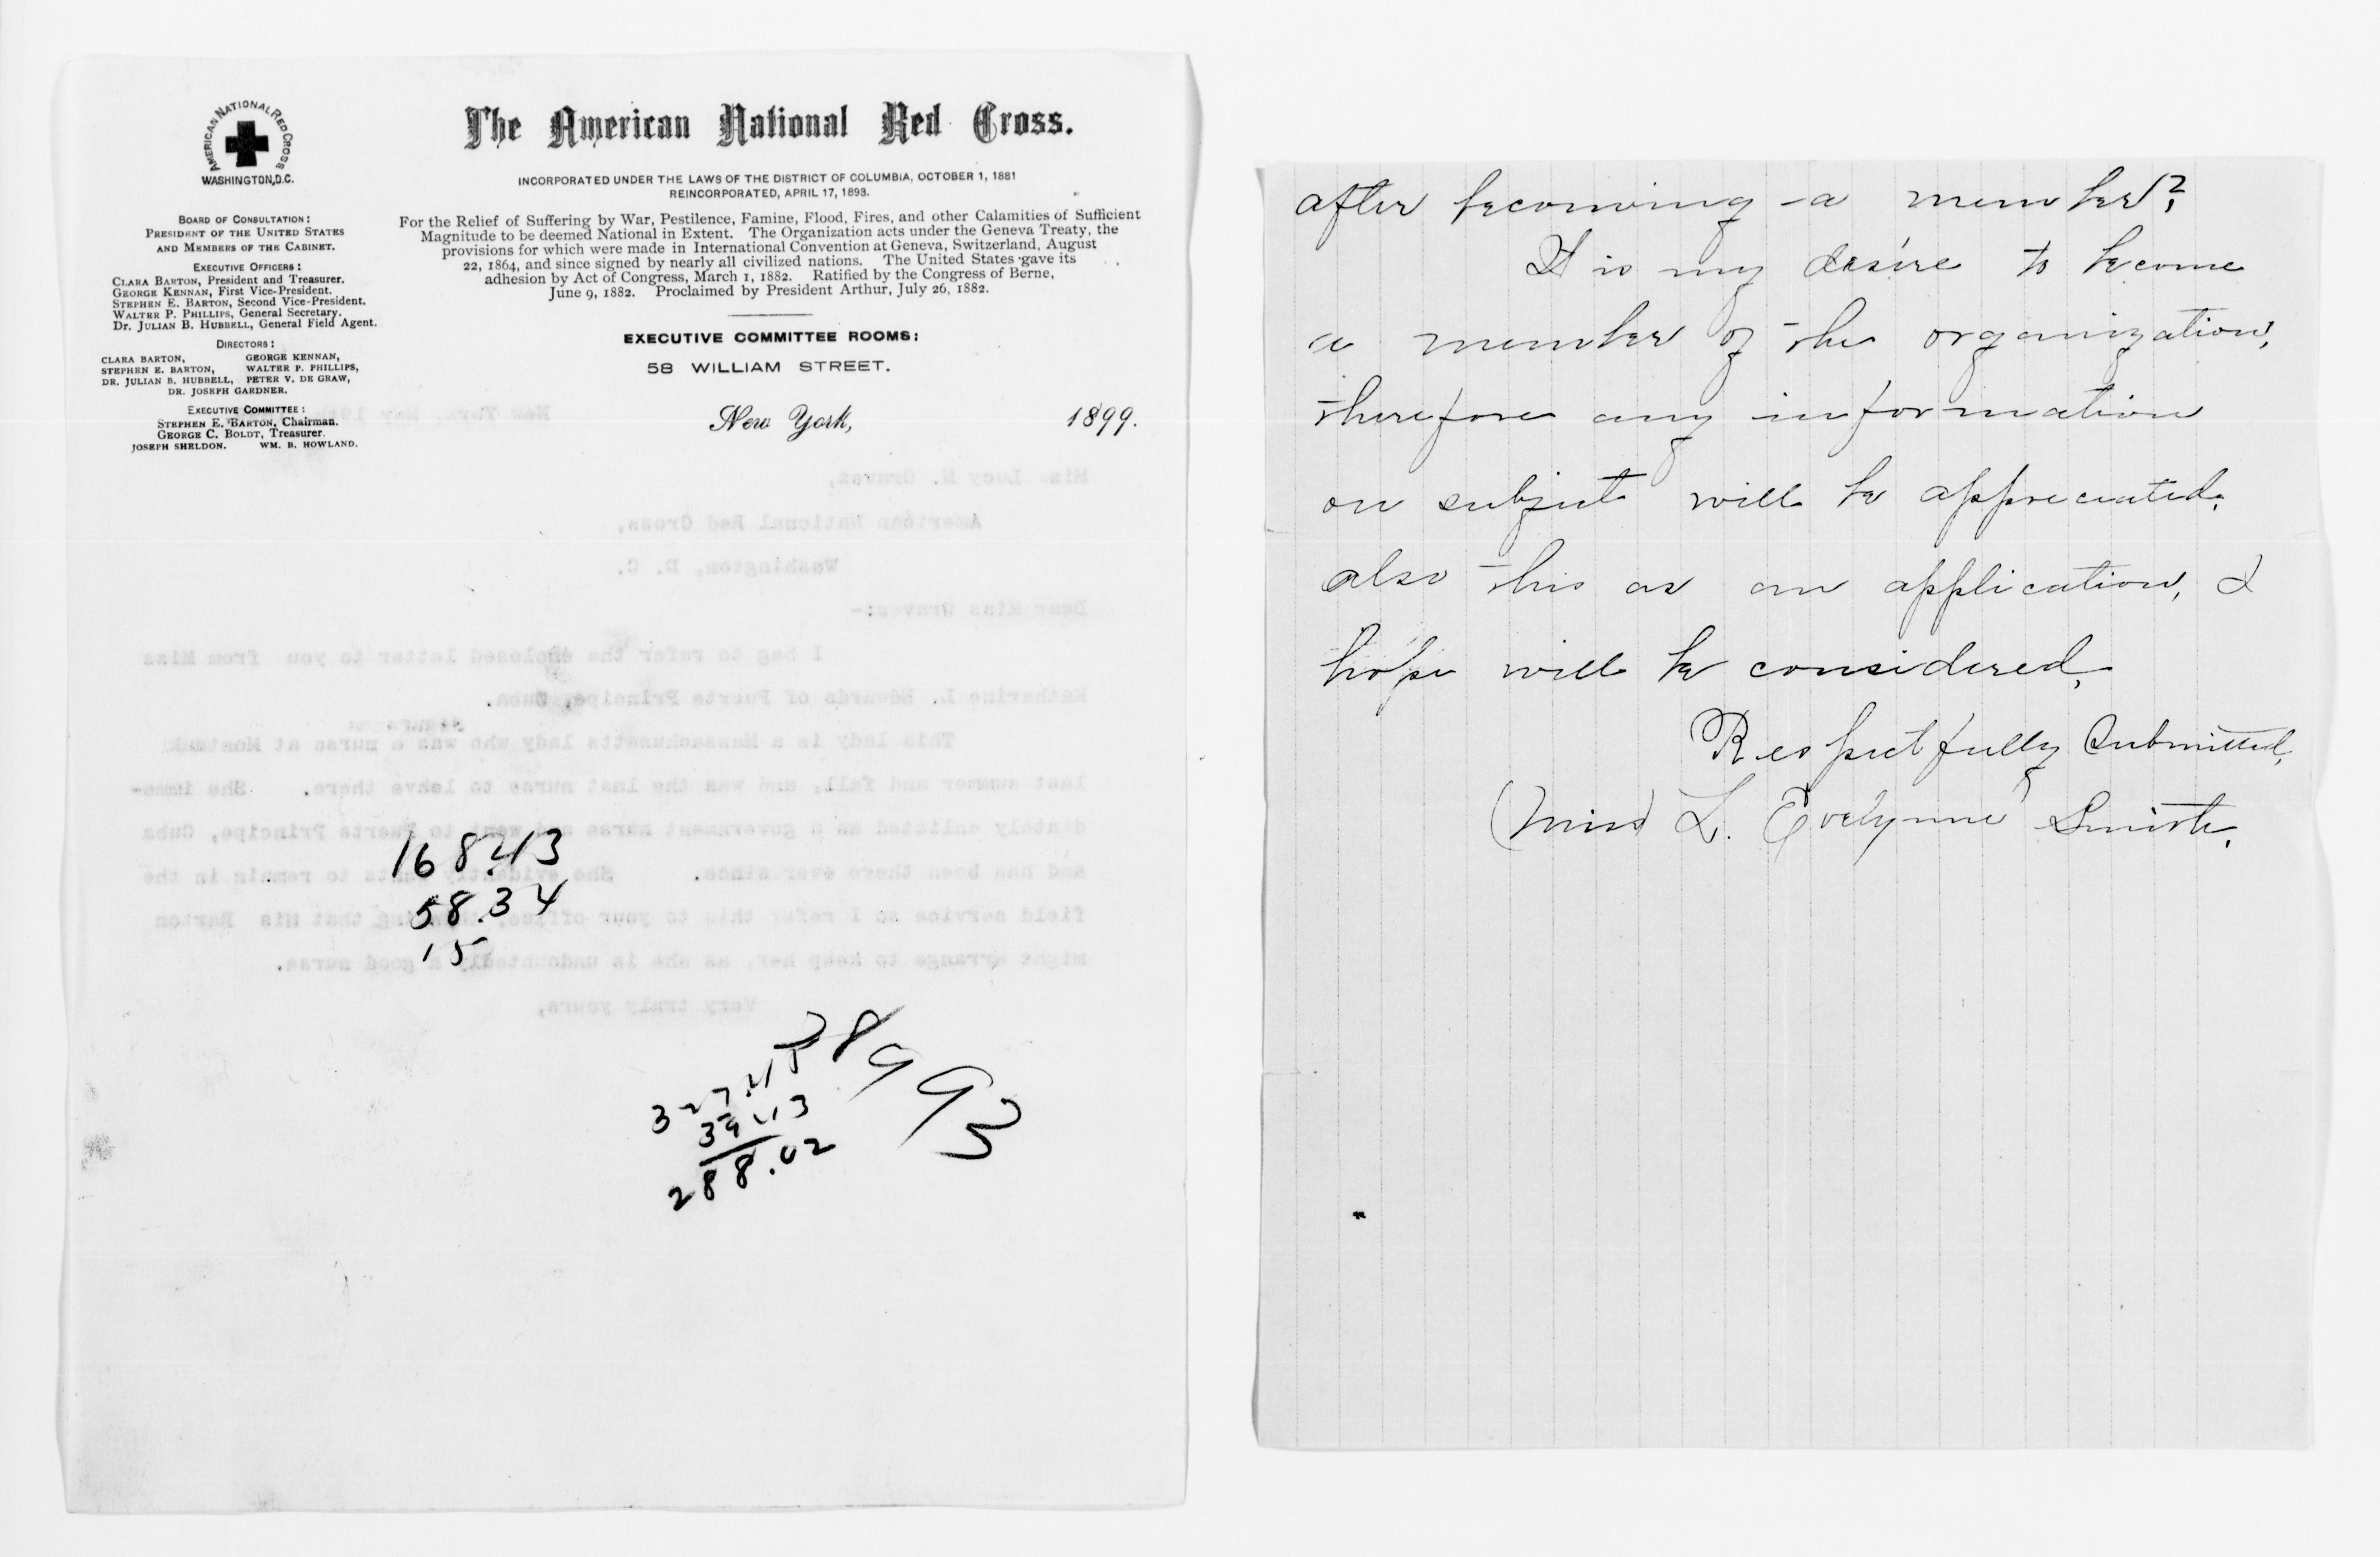 AMERICAN NATIONAL RED CROSS
WASHINGTON, D.C.
BOARD OF CONSULTATION:
PRESIDENT OF THE UNITED STATES
AND MEMBERS OF THE CABINET.
EXECUTIVE OFFICERS:
CLARA BARTON, President and Treasurer.
GEORGE KENNAN, First Vice-President.
STEPHEN E. BARTON, Second Vice-President.
WALTER P. PHILLIPS, General Secretary.
Dr. JULIAN B. HUBBELL, General Field Agent.
DIRECTORS:
CLARA BARTON, GEORGE KENNAN,
STEPHEN E. BARTON, WALTER P. PHILLIPS,
DR. JULIAN B. HUBBELL, PETER V. DE GRAW,
DR. JOSEPH GARDNER.
EXECUTIVE COMMITTEE:
STEPHEN E. BARTON, Chairman.
GEORGE C. BOLDT, Treasurer.
JOSEPH SHELDON. WM. B. HOWLAND.
The American National Red Cross.
INCORPORATED UNDER THE LAWS OF THE DISTRICT OF COLUMBIA, OCTOBER 1, 1881
REINCORPORATED, APRIL 17, 1893.
For the Relief of Suffering by War, Pestilence, Famine, Flood, Fires, and other Calamities of Sufficient
Magnitude to be deemed National in Extent. The Organization acts under the Geneva Treaty, the
provisions for which were made in International Convention at Geneva, Switzerland, August
22, 1864, and since signed by nearly all civilized nations. The United States gave its
adhesion by Act of Congress, March 1, 1882. Ratified by the Congress of Berne,
June 9, 1882. Proclaimed by President Arthur, July 26, 1882.
EXECUTIVE COMMITTEE ROOMS:
58 WILLIAM STREET.
New York, 1899.
New York, May 19th,
Miss Lucy M. Graves,
American National Red Cross,
Washington, D. C.
Dear Miss Graves:-
I beg to refer the enclosed letter to you from Miss
Katharine L. Edwards of Puerto Principe, Cuba.
This lady is a Massachusetts lady who was a nurse at Montauk
last summer and fall, and was the last nurse to leave there. She imme-
diately enlisted as a government nurse and went to Puerto Principe, Cuba
and has been there ever since. She evidently wants to remain in the
field service so I refer this to your office, thinking that Mis Barton
might arrange to keep her, as she is undoubtedly a good nurse.
Very truly yours,
168.43
58.34
15
28993
327.45
39.43
288.02
after becoming a member?
It is my desire to become
a member of the organization,
therefore any information
on subject will be appreciated.
also this as an application, I
hope will be considered.
Respectfully Submitted,
(Miss) L. Evelynne Smith.